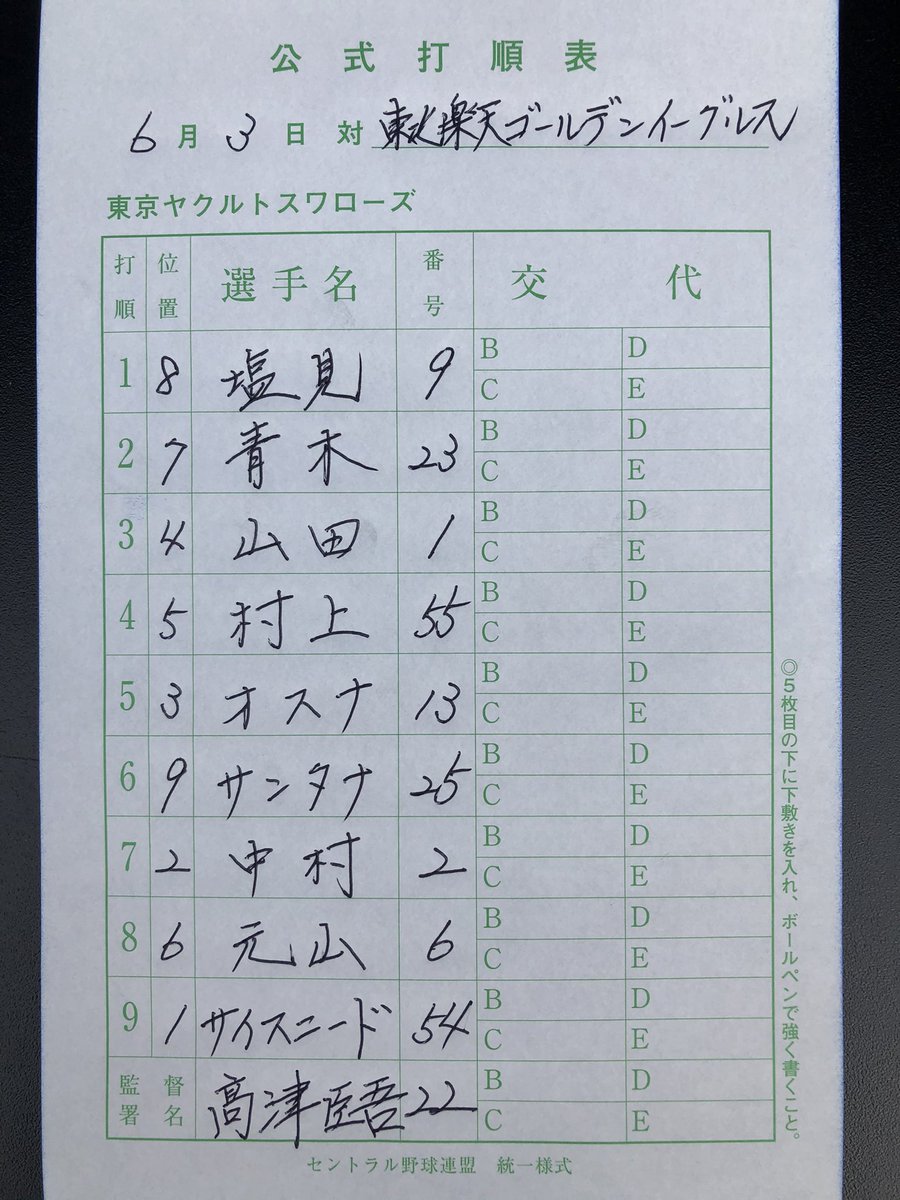 公式打順表
6月3日対 東北楽天ゴールデンイーグルス
東京ヤクルトスワローズ
打順 位置 選手名 番号 交代
1 8 塩見 9 B D C E
2 7 青木 23 B D C E
3 4 山田 1 B D C E
4 5 村上 55 B D C E
5 3 オスナ 13 B D C E
6 9 サンタナ 25 B D C E
7 2 中村 2 B D C E
8 6 元山 6 B D C E
9 1 サイスニード 54 B D C E
監督署名 高津臣吾 22 B D C E
◎5枚目の下に下敷きを入れ、ボールペンで強く書くこと。
セントラル野球連盟 統一様式